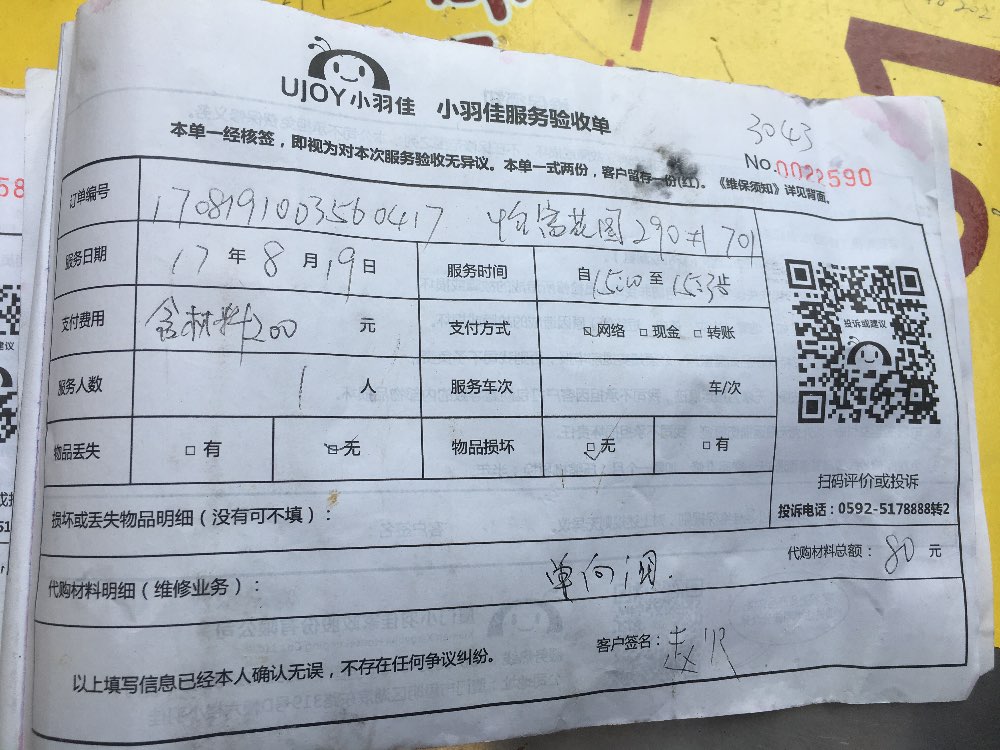 UJOY小羽佳 小羽佳服务验收单
3043
本单一经核签，即视为对本次服务验收无异议。本单一式两份，客户留存一份(红)。《维保须知》详见背面。
No.0022590
订单编号 1708191003560417 怡富花园290#701
服务日期 17年8月19日 服务时间 自15:00至15:35
支付费用 含材料200元 支付方式 网络 现金 转账
服务人数 1人 服务车次 车/次
物品丢失 有 无 物品损坏 无 有
投诉或建议
扫码评价或投诉
投诉电话：0592-5178888转2
损坏或丢失物品明细（没有可不填）：
代购材料明细（维修业务）： 单向阀. 代购材料总额：80元
以上填写信息已经本人确认无误，不存在任何争议纠纷。 客户签名：赵